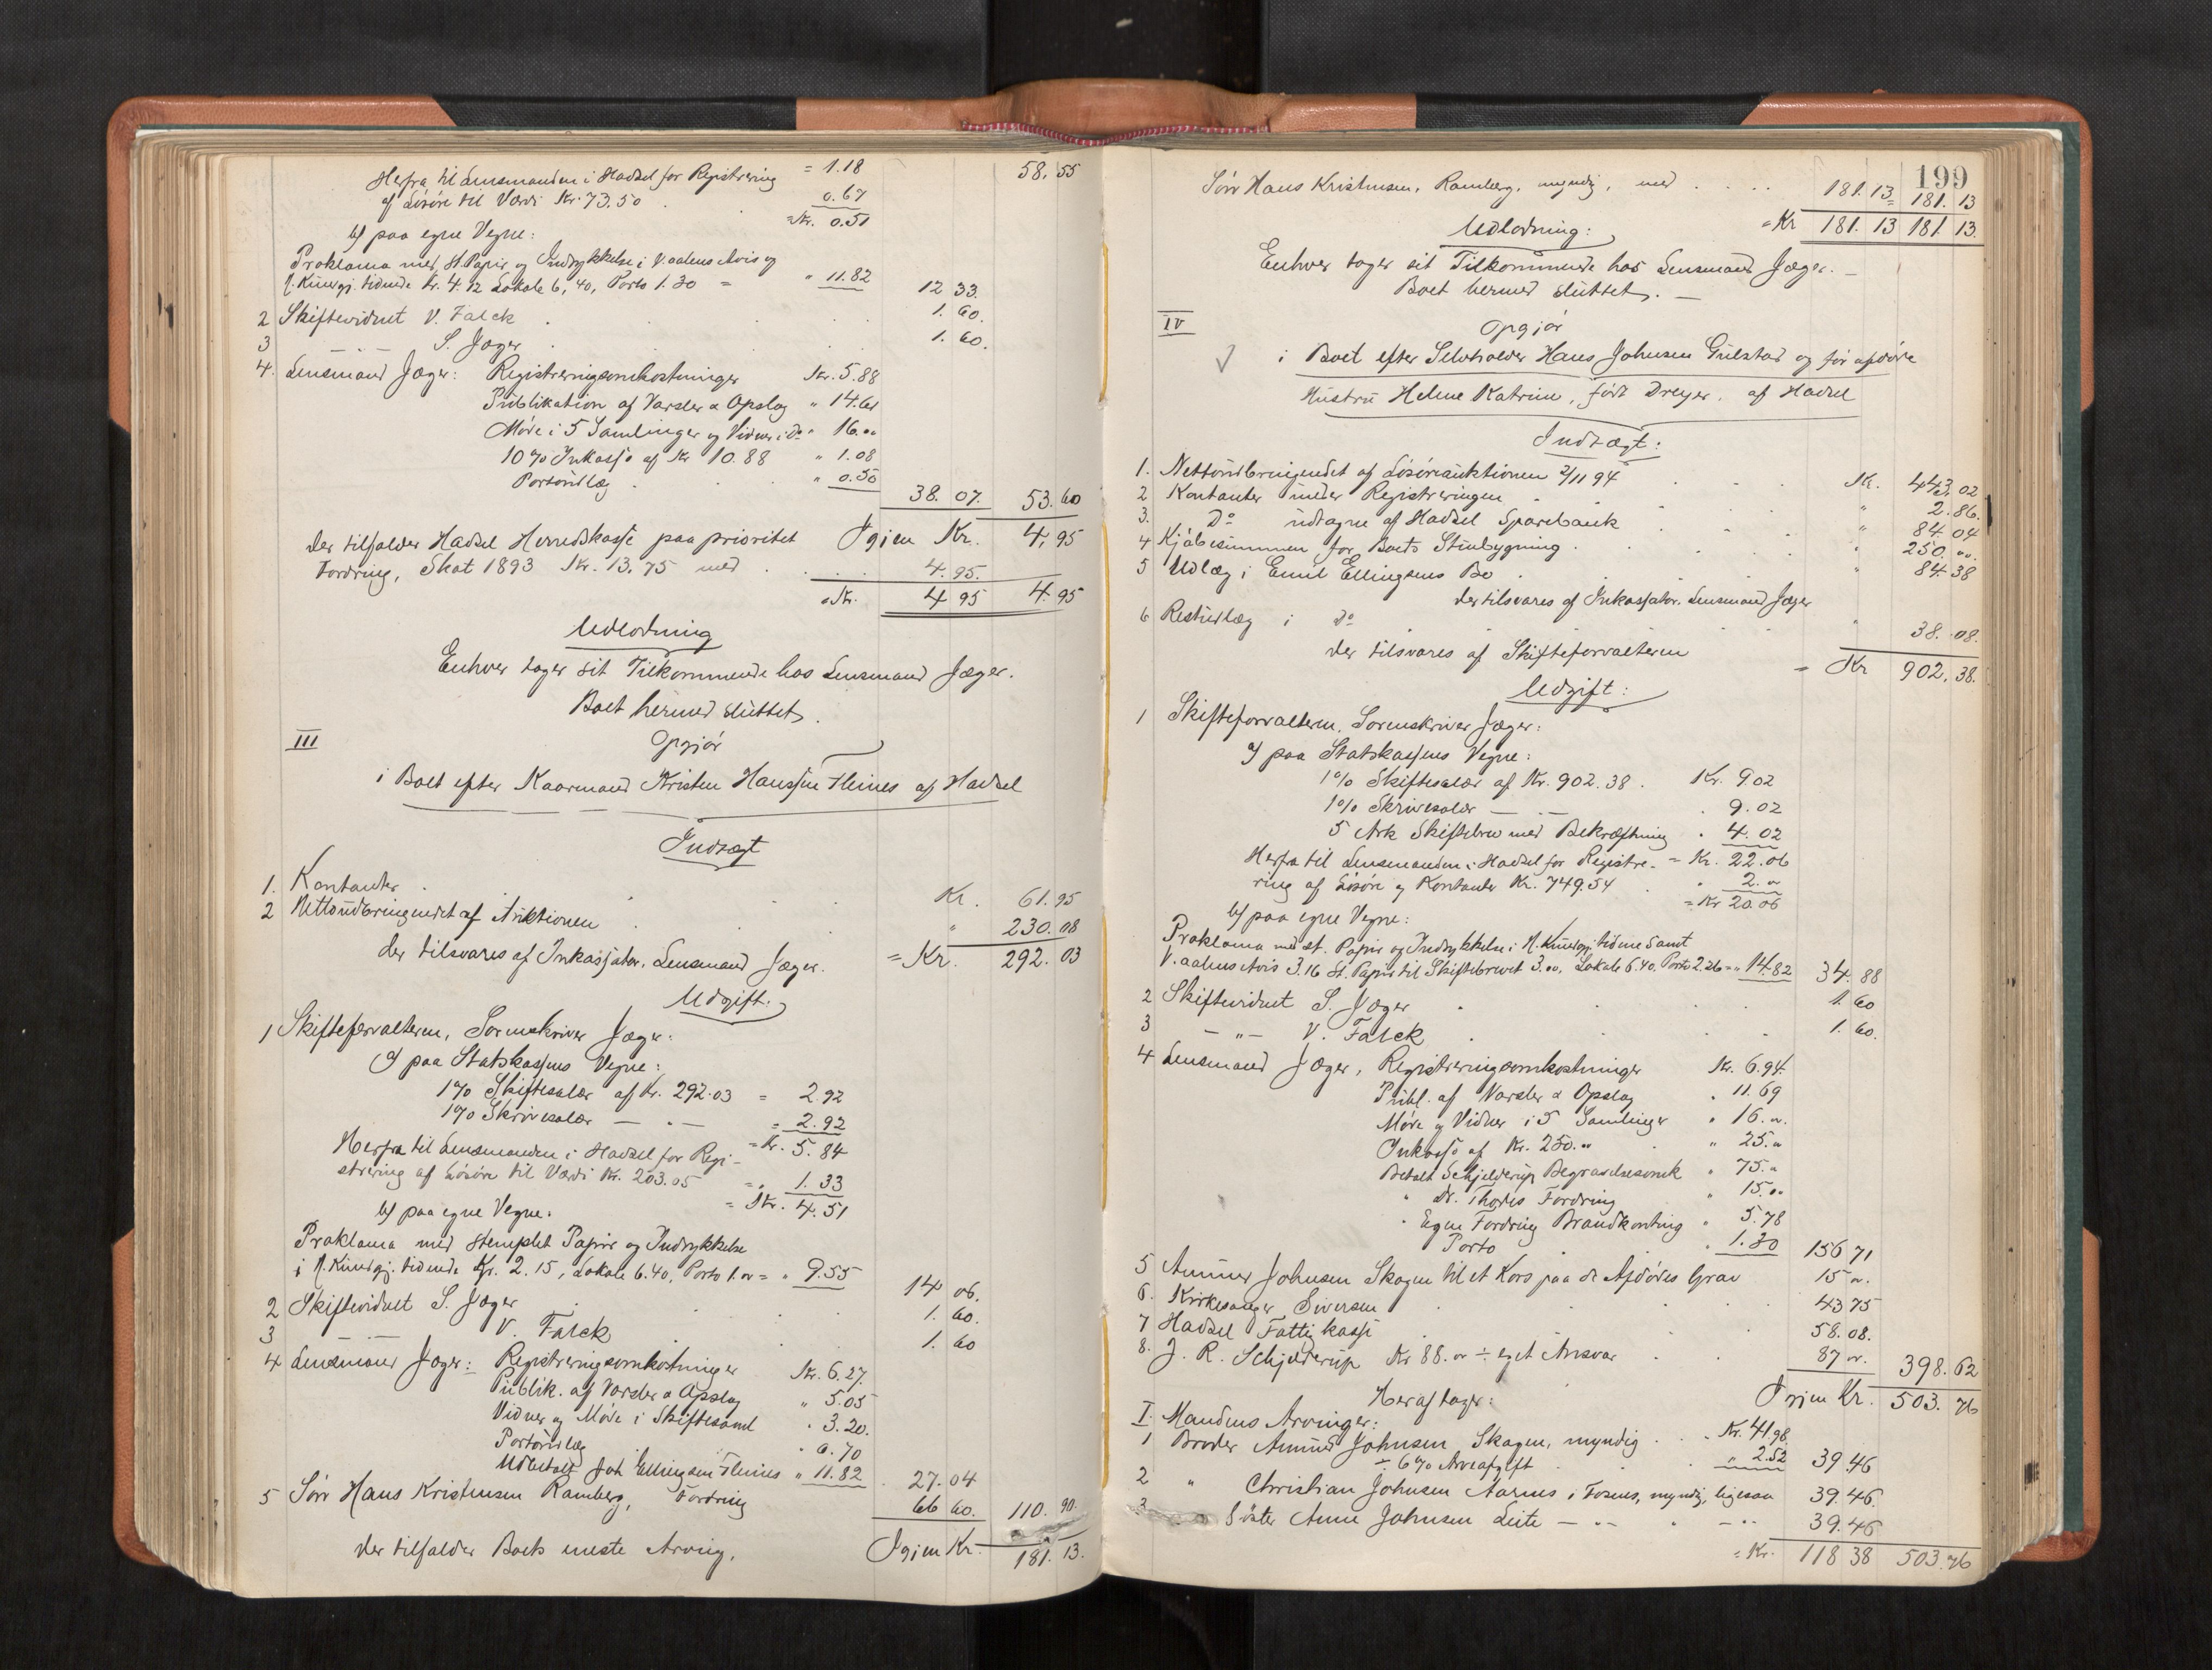 Herfra til Lensmanden i Hadsel for Registrering = 1.18 58.55
af Løsøre til Værdi Kr. 73.50 . 0.67
= Kr. 0.51
b) paa egne Vegne:
Proklama med st. Papir og Indrykkelse i V.aalens Avis og
N. Kundgj. tidende Kr. 4.12 Lokale 6,40, Porto 1.30 = " 11.82 12 33.
2 Skiftevidnet V. Falck . 1. 60.
3 — " — S. Jæger . 1. 60.
4. Lensmand Jæger: Registreringsomkostninger Kr. 5.88
Publikation af Varsler & Opslag " 14.61
Møde i 5 Samlinger og Vidner i Do " 16."
10% Inkasso af Kr 10.88 " 1.08
Portoudlæg " 0.50 38. 07. 53. 60
Igjen Kr. 4, 95
der tilfalder Hadsel Herredskasse paa prioritet
Fordring, Skat 1893 Kr. 13.75 med . . 4.95.
= Kr. 4 95 4. 95
Udlodning
Enhver tager sit Tilkommende hos Lensmand Jæger.
Boet hermed sluttet.
III Opgjør
i Boet efter Kaarmand Kristen Hanssen Fleines af Hadsel
Indtægt
1. Kontanter . Kr. 61.95
2 Nettoudbringendet af Auktionen . " 230.08
der tilsvares af Inkassator, Lensmand Jæger. = Kr. 292. 03
Udgift.
1 Skifteforvalteren, Sorenskriver Jæger:
a) paa Statskassens Vegne:
1% Skiftesalær af Kr. 292.03 = 2.92
1% Skrivesalær — " — = 2.92
= Kr. 5. 84
Herfra til Lensmanden i Hadsel for Regi-
strering af Løsøre til Værdi Kr. 203.05 = " 1. 33
= Kr. 4. 51
b) paa egne Vegne:
Proklama med stemplet Papir og Indrykkelse
i N. Kundgj. tidende Kr. 2.15, Lokale 6.40, Porto 1.00 = " 9.55 14 06.
2 Skiftevidnet S. Jæger . 1. 60.
3 — " — V. Falck . 1. 60
4 Lensmand Jæger: Registreringsomkostninger Kr. 6.27.
Publik. af Varsler & Opslag " 5.05
Vidner og Møde i Skiftesaml " 3.20.
Portoudlæg " 0.70
Udbetalt Joh Ellingsen Fleines " 11.82 27.04
5 Søn Hans Kristensen Ramberg, Fordring 66 60. 110. 90.
Igjen Kr. 181. 13.
der tilfalder Boets eneste Arving,
199
Søn Hans Kristensen, Ramberg, myndig, med . . . . 181.13 = 181. 13
= Kr 181. 13 181. 13.
Udlodning:
Enhver tager sit Tilkommende hos Lensmand Jæger. —
Boet hermed sluttet. —
IV Opgjør
i Boet efter Selveier Hans Johnsen Gulstad og før afdøde
Hustru Helene Katrine, født Dreyer, af Hadsel
Indtægt:
1. Nettoudbringendet af Løsøreauktionen 2/11 94 . . . Kr. 443.02
2 Kontanter under Registreringen . " 2.86.
3. Do udtagne af Hadsel Sparebank . " 84.04
4 Kjøbesummen for Boets Stuebygning . " 250."
5 Udlæg i Emil Ellingsens Bo . " 84.38
der tilsvares af Inkassator, Lensmand Jæger
6 Restudlæg i Do " 38.08.
der tilsvares af Skifteforvalteren = Kr 902, 38.
Udgift:
1 Skifteforvalteren, Sorenskriver Jæger:
a) paa Statskassens Vegne:
1% Skiftesalær af Kr. 902.38 . Kr. 9.02
1% Skrivesalær — " — . 9.02
5 Ark Skiftebrev med Bekræftning " 4. 02
= Kr. 22.06
Herfra til Lensmanden i Hadsel for Registre-
ring af Løsøre og Kontanter Kr. 749.54 " 2."
= Kr 20.06
b) paa egne Vegne:
Proklama med st. Papir og Indrykkelse i N. Kundgj. tidene samt
V. aalens Avis 3.16 st. Papir til Skiftebrevet 3.00, Lokale 6.40, Porto 2.26 = " 14.82 34. 88
2 Skiftevidnet S. Jæger . 1. 60
3 — " — V. Falck . 1. 60.
4 Lensmand Jæger, Registreringsomkostninger Kr. 6.94.
Publ. af Varsler & Opslag " 11.69
Møde og Vidner i 5 Samlinger " 16."
Inkasso af Kr. 250." " 25."
Betalt Schjelderup Begravelsesomk " 75."
" Dr. Thodes Fordring " 15."
" Egen Fordring Brandkonting " 5.78
Porto " 1.30 156 71
5 Ammer Johnsen Skagen til et Kors paa de Afdødes Grav 15 ".
6. Kirkesanger Sivertsen . 43 75
7 Hadsel Fattigkasse . 58.08.
8. J. R. Schjelderup Kr 88.00 ÷ eget Ansvar . 87 ". 398. 62
Igjen Kr. 503. 76
Heraf tager:
I. Mandens Arvinger:
1 Broder Ammer Johnsen Skagen, myndig . . Kr. 41.98
÷ 6% Arveafgift " 2.52 39.46
2 " Christian Johnsen Aarnes i Fosnes, myndig, ligesaa 39.46.
3 Søster Anne Johnsen Leite — " — " — " — 39.46
= Kr. 118 38 503.76